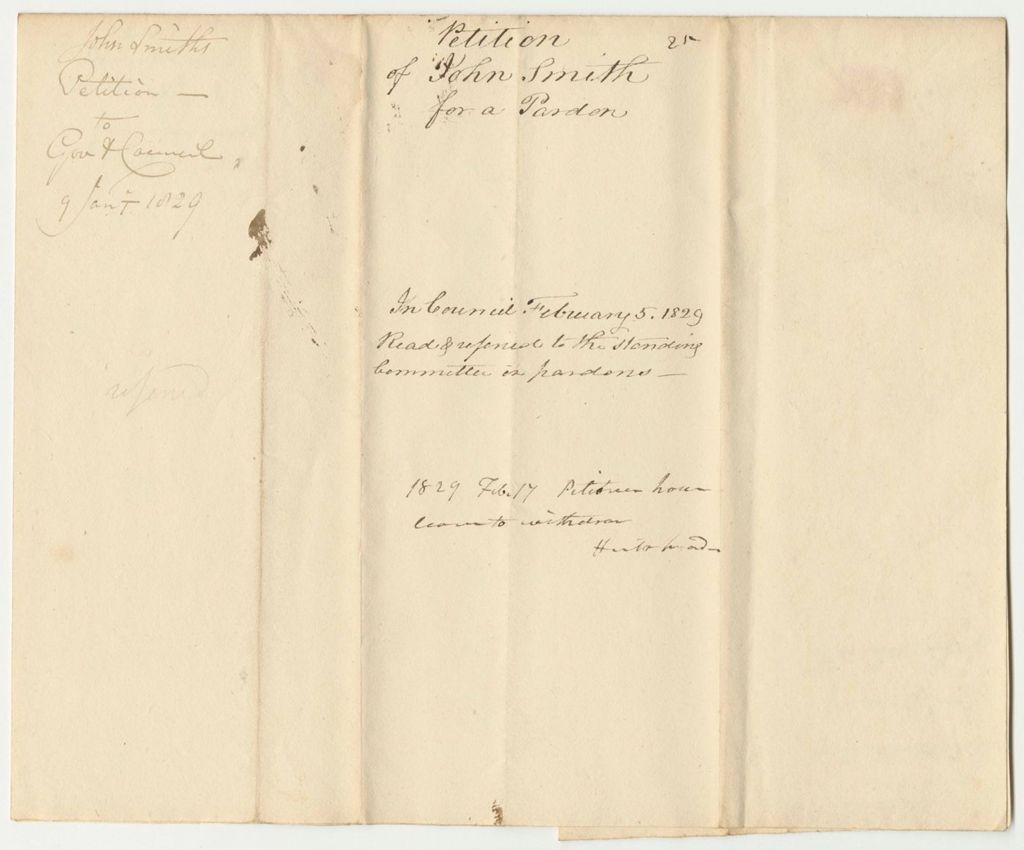 John Smiths
Petition —
to
Gov & Council
9 Jany 1829
referred
Petition
25
of John Smith
for a Pardon
In Council February 5. 1829
Read & referred to the Standing
Committee on pardons —
1829 Feb. 17 Petitioner have
leave to withdraw